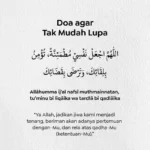 Doa agar
Tak Mudah Lupa
اللَّهُمَّ اجْعَلْ نَفْسِيْ مُطْمَئِنَّةً، تُؤْمِنُ
بِلِقَائِكَ، وَتَرْضَى بِقَضَائِكَ
Allâhumma ij'al nafsî muthmainnatan,
tu'minu bi liqâika wa tardlâ bi qadlâika
"Ya Allah, jadikan jiwa kami menjadi
tenang, beriman akan adanya pertemuan
dengan-Mu, dan rela atas qadha-Mu
(ketentuan-Mu)."